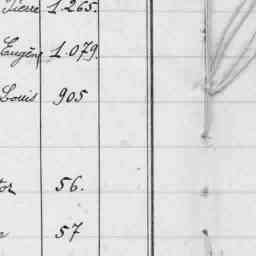 Pierre 1.265.
Eugène 1.079.
Louis 905
56.
57